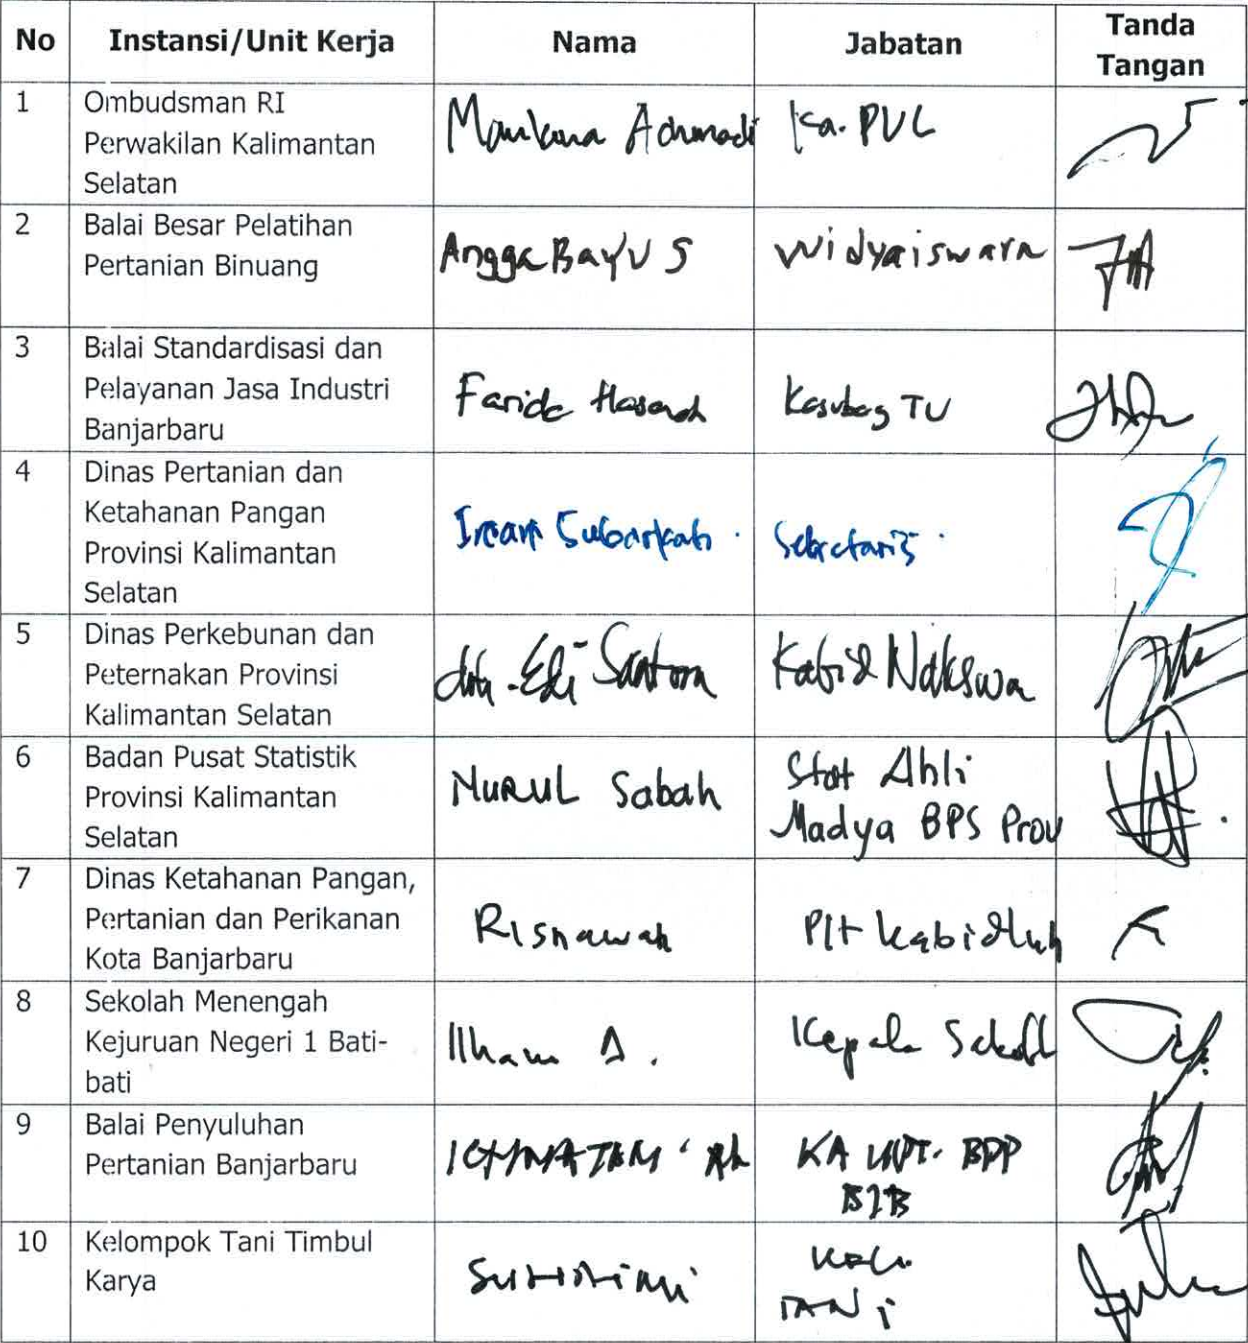 No Instansi/Unit Kerja Nama Jabatan Tanda
Tangan
1 Ombudsman RI
Perwakilan Kalimantan
Selatan
Maulana Achmadi Ka. PVL
2 Balai Besar Pelatihan
Pertanian Binuang
Angga Bayu S Widyaiswara
3 Balai Standardisasi dan
Pelayanan Jasa Industri
Banjarbaru
Farida Hasanah Kasubag TU
4 Dinas Pertanian dan
Ketahanan Pangan
Provinsi Kalimantan
Selatan
Imam Subarkah Sekretaris
5 Dinas Perkebunan dan
Peternakan Provinsi
Kalimantan Selatan
drh. Edi Santosa Kabid Nakeswan
6 Badan Pusat Statistik
Provinsi Kalimantan
Selatan
NURUL Sabah Stat Ahli
Madya BPS Prov
7 Dinas Ketahanan Pangan,
Pertanian dan Perikanan
Kota Banjarbaru
Risnawah Plt Kabidluh
8 Sekolah Menengah
Kejuruan Negeri 1 Bati-
bati
Ilham A. Kepala Sekolah
9 Balai Penyuluhan
Pertanian Banjarbaru
KA UPT. BPP
BJB
10 Kelompok Tani Timbul
Karya
TANi